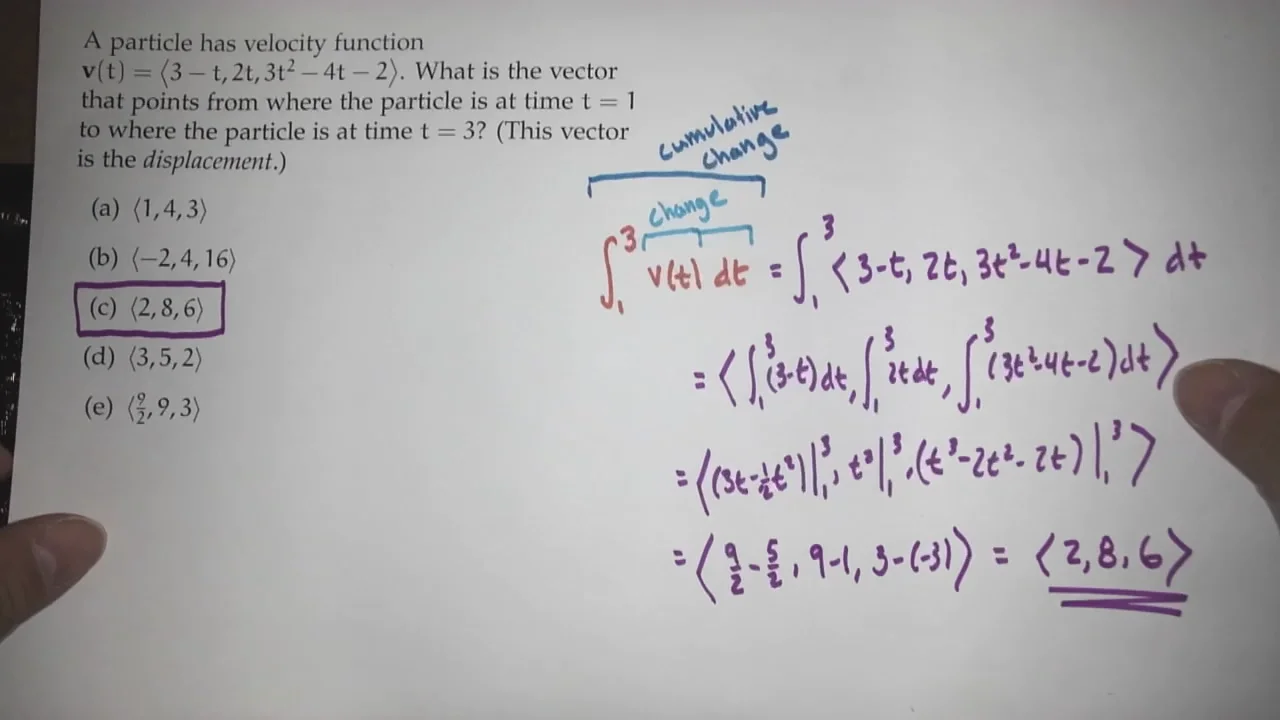 A particle has velocity function
v(t) = ⟨3 − t, 2t, 3t² − 4t − 2⟩. What is the vector
that points from where the particle is at time t = 1
to where the particle is at time t = 3? (This vector
is the displacement.)
(a) ⟨1, 4, 3⟩
(b) ⟨−2, 4, 16⟩
(c) ⟨2, 8, 6⟩
(d) ⟨3, 5, 2⟩
(e) ⟨9/2, 9, 3⟩
cumulative
change
change
∫₁³ v(t) dt = ∫₁³ ⟨3-t, 2t, 3t²-4t-2⟩ dt
= ⟨∫₁³(3-t)dt, ∫₁³ 2t dt, ∫₁³ (3t²-4t-2)dt⟩
= ⟨(3t-½t²)|₁³, t²|₁³, (t³-2t²-2t)|₁³⟩
= ⟨9/2 - 5/2, 9-1, 3-(-3)⟩ = ⟨2, 8, 6⟩